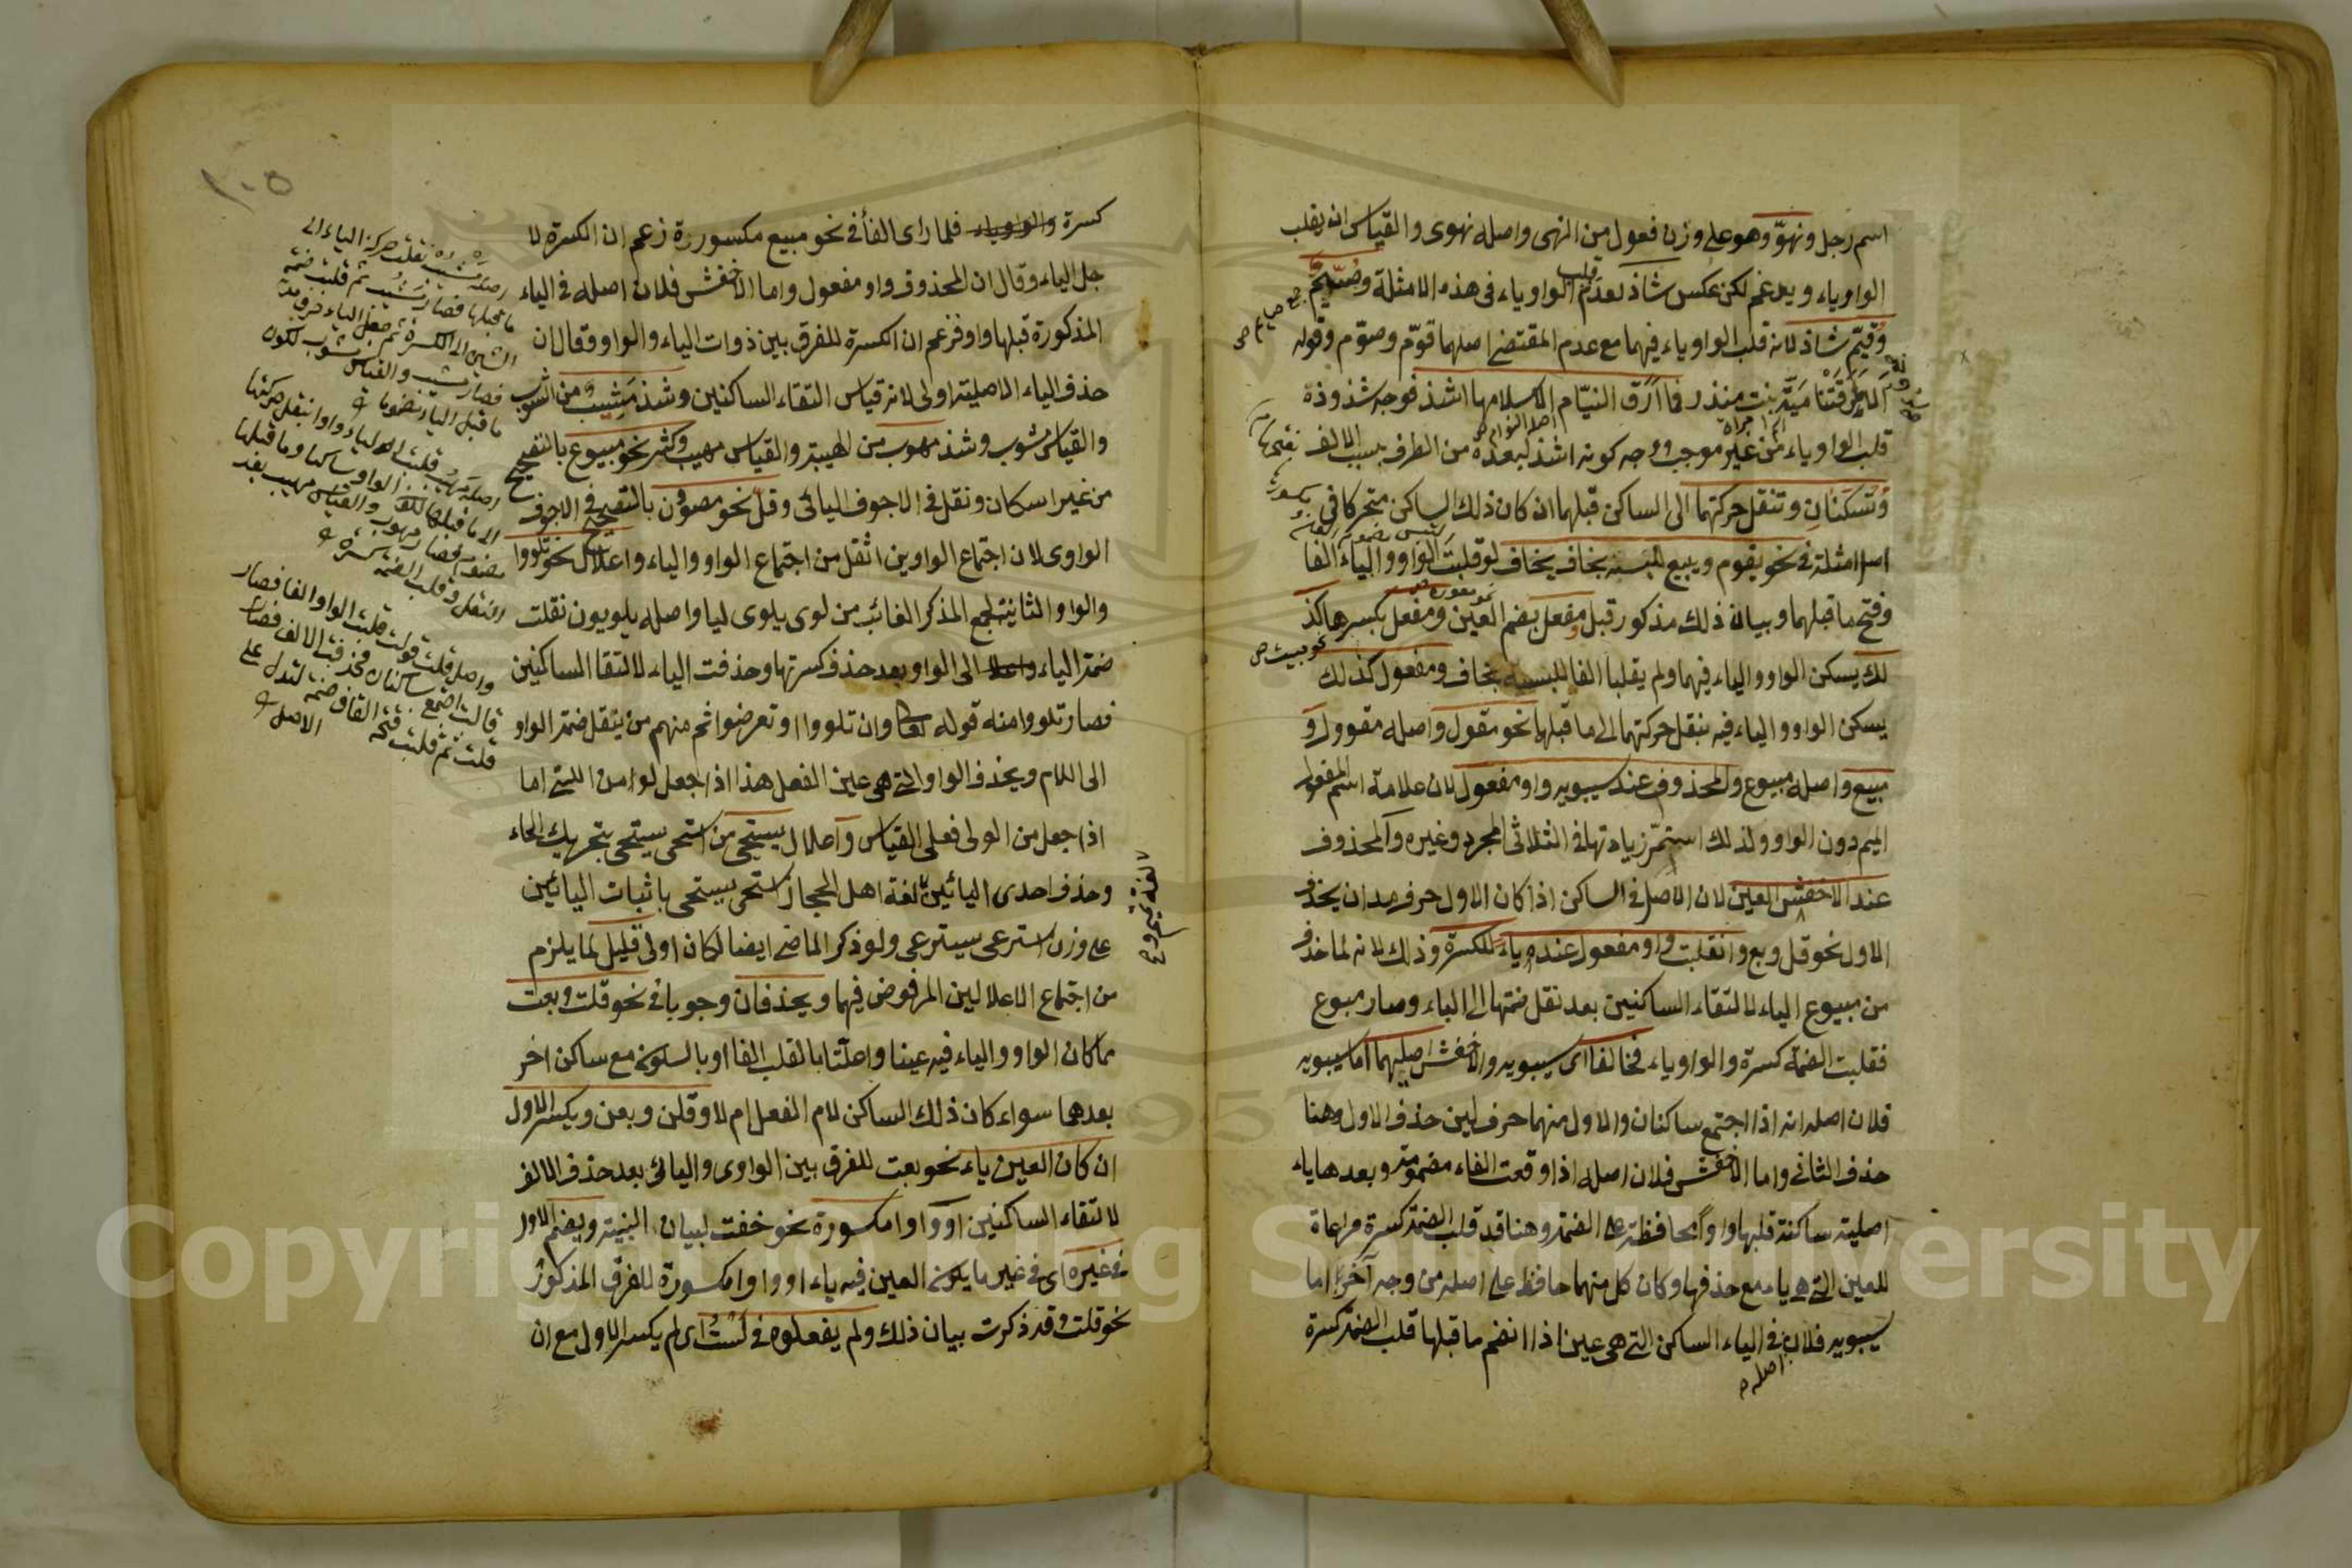 اسم رجل ونهوّ وهو على وزن فعول من النهى واصله نهوى والقياس ان يقلب
الواو ياء ويدغم لكن عكس شاذ لعدم قلب الواو ياء فى هذه الامثلة وصيّم
وقيّم شاذ لانه قلب الواو ياء فيهما مع عدم المقتضى اصلهما قوّم وصوّم وقوله
الا طرقتنا ميّة بنت منذر فما ارّق النيّام الا سلامها اشذ فوجه شذوذه
قلب الواو ياء من غير موجب ووجه كونه اشذ لبعده من الطرف بسبب الالف
وتسكنان وتنقل حركتهما الى الساكن قبلهما ان كان ذلك الساكن متحركا فى
اصل امثلة فى نحو يقوم ويبيع للبسه بخاف يخاف لو قلبت الواو والياء الفا
وفتح ما قبلهما وبيان ذلك مذكور قبل ومفعل بضم العين ومفعل بكسرها كذ
لك يسكن الواو والياء فيهما ولم يقلبا الفا للبسه بخاف ومفعول كذلك
يسكن الواو والياء فيه بنقل حركتهما الى ما قبلها نحو مقول واصله مقوول و
مبيع واصله مبيوع والمحذوف عند سيبويه واو مفعول لان علامة اسم المفعول
الميم دون الواو ولذلك استمرّ زيادتها فى الثلاثى المجرد وغيره والمحذوف
عند الاخفش العين لان الاصل فى الساكن اذا كان الاول حرف مد ان يحذف
الاول نحو قل وبع وانقلبت واو مفعول عنده ياء للكسرة وذلك لانه لما حذف
من مبيوع الياء لالتقاء الساكنين بعد نقل ضمتها الى الباء وصار مبوع
فقلبت الضمة كسرة والواو ياء فخالفا اى سيبويه والاخفش اصليهما اما سيبويه
فلان اصله انه اذا اجتمع ساكنان والاول منهما حرف لين حذف الاول وهنا
حذف الثانى واما الاخفش فلان اصله اذا وقعت الفاء مضمومة وبعدها ياء
اصلية ساكنة قلبها واوا محافظة على الضمة وهنا قد قلب الضمة كسرة مراعاة
للعين التى هى ياء مع حذفها وكان كل منهما حافظ على اصله من وجه آخر اما
سيبويه فلان فى الياء الساكن التى هى عين اذا انضم ما قبلها قلب الضمة كسرة
اصله
١٠٥
كسرة والواو ياء فلما راى الفا فى نحو مبيع مكسورة زعم ان الكسرة لا
جل الياء وقال ان المحذوف واو مفعول واما الاخفش فلان اصله فى الياء
المذكورة قبلها واو فزعم ان الكسرة للفرق بين ذوات الياء والواو فقال ان
حذف الياء الاصلية اولى لانه قياس التقاء الساكنين وشذ مشيب من الشوب
والقياس مشوب وشذ مهوب من الهيبة والقياس مهيب وكثر نحو مبيوع بالتصحيح
من غير اسكان ونقل فى الاجوف اليائى وقلّ نحو مصوون بالتصحيح فى الاجوف
الواوى لان اجتماع الواوين اثقل من اجتماع الواو والياء واعلال نحو تلووا
والواو الثانية لجمع المذكر الغائب من لوى يلوى ليا واصله يلويون نقلت
ضمة الياء الى الواو بعد حذف كسرتها وحذفت الياء لالتقا الساكنين
فصار تلووا منه قوله تعا وان تلووا او تعرضوا ثم منهم من ينقل ضمة الواو
الى اللام ويحذف الواو التى هى عين الفعل هذا اذا جعل لوا من اللىّ اما
اذا جعل من الولى فعلى القياس واعلال يستحى من استحى يستحى بتحريك الحاء
وحذف احدى اليائين لغة اهل الحجاز استحى يستحى باثبات اليائين
على وزن استرعى يسترعى ولو ذكر الماضى ايضا لكان اولى قليل لما يلزم
من اجتماع الاعلالين المرفوض فيهما ويحذفان وجوبا فى نحو قلت وبعت
مما كان الواو والياء فيه عينا واعلّتا بالقلب الفا او بالسكون مع ساكن اخر
بعدهما سواء كان ذلك الساكن لام الفعل ام لا وقلن وبعن ويكسر الاول
ان كان العين ياء نحو بعت للفرق بين الواوى واليائى بعد حذف الالف
لالتقاء الساكنين او واوا مكسورة نحو خفت لبيان البنية ويضم الاول
فى غيره اى فى غير ما يكون العين فيه ياء او واوا مكسورة للفرق المذكور
نحو قلت وقد ذكرت بيان ذلك ولم يفعلوه فى لست اى لم يكسر الاول مع ان
واصل قلت قولت قلبت الواو الفا فصار
قالت اجتمع ساكنان فحذفت الالف فصار
قلت ثم قلبت فتحة القاف ضمة لتدل على
الاصل
Copyright © King Saud University